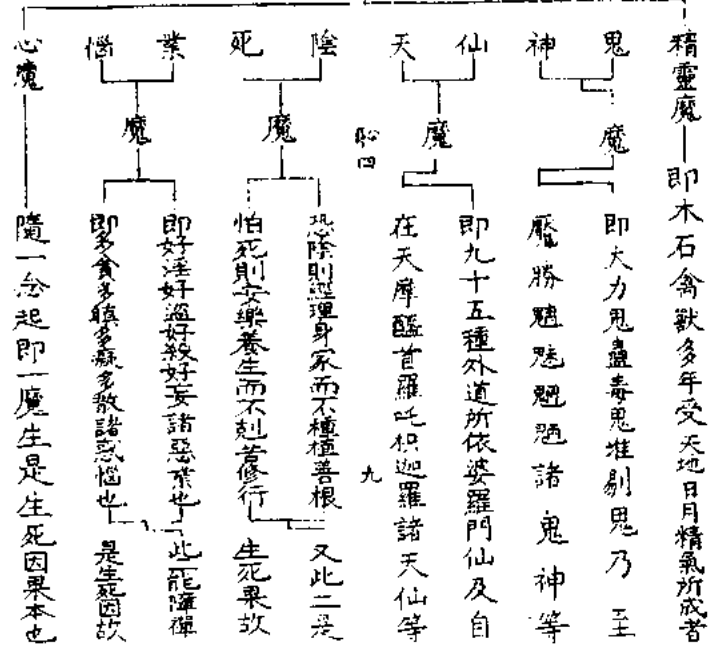 精靈魔 即木石禽獸多年受天地日月精氣所成者
鬼 神 魔
即大力鬼蠱毒鬼堆剔鬼乃至
魘勝魑魅魍魎諸鬼神等
仙 天 魔
即九十五種外道所依婆羅門仙及自
在天摩醯首羅吒枳迦羅諸天仙等
四 九
陰 死 魔
恐陰則經理身家而不種植善根
怕死則安樂養生而不剋苦修行
又此二是
生死果故
業 惱 魔
即好淫好盜好殺好妄諸惡業也
即多貪多瞋多癡多散諸惑惱也
此二能障禪
是生死因故
心魔 隨一念起即一魔生是生死因果本也